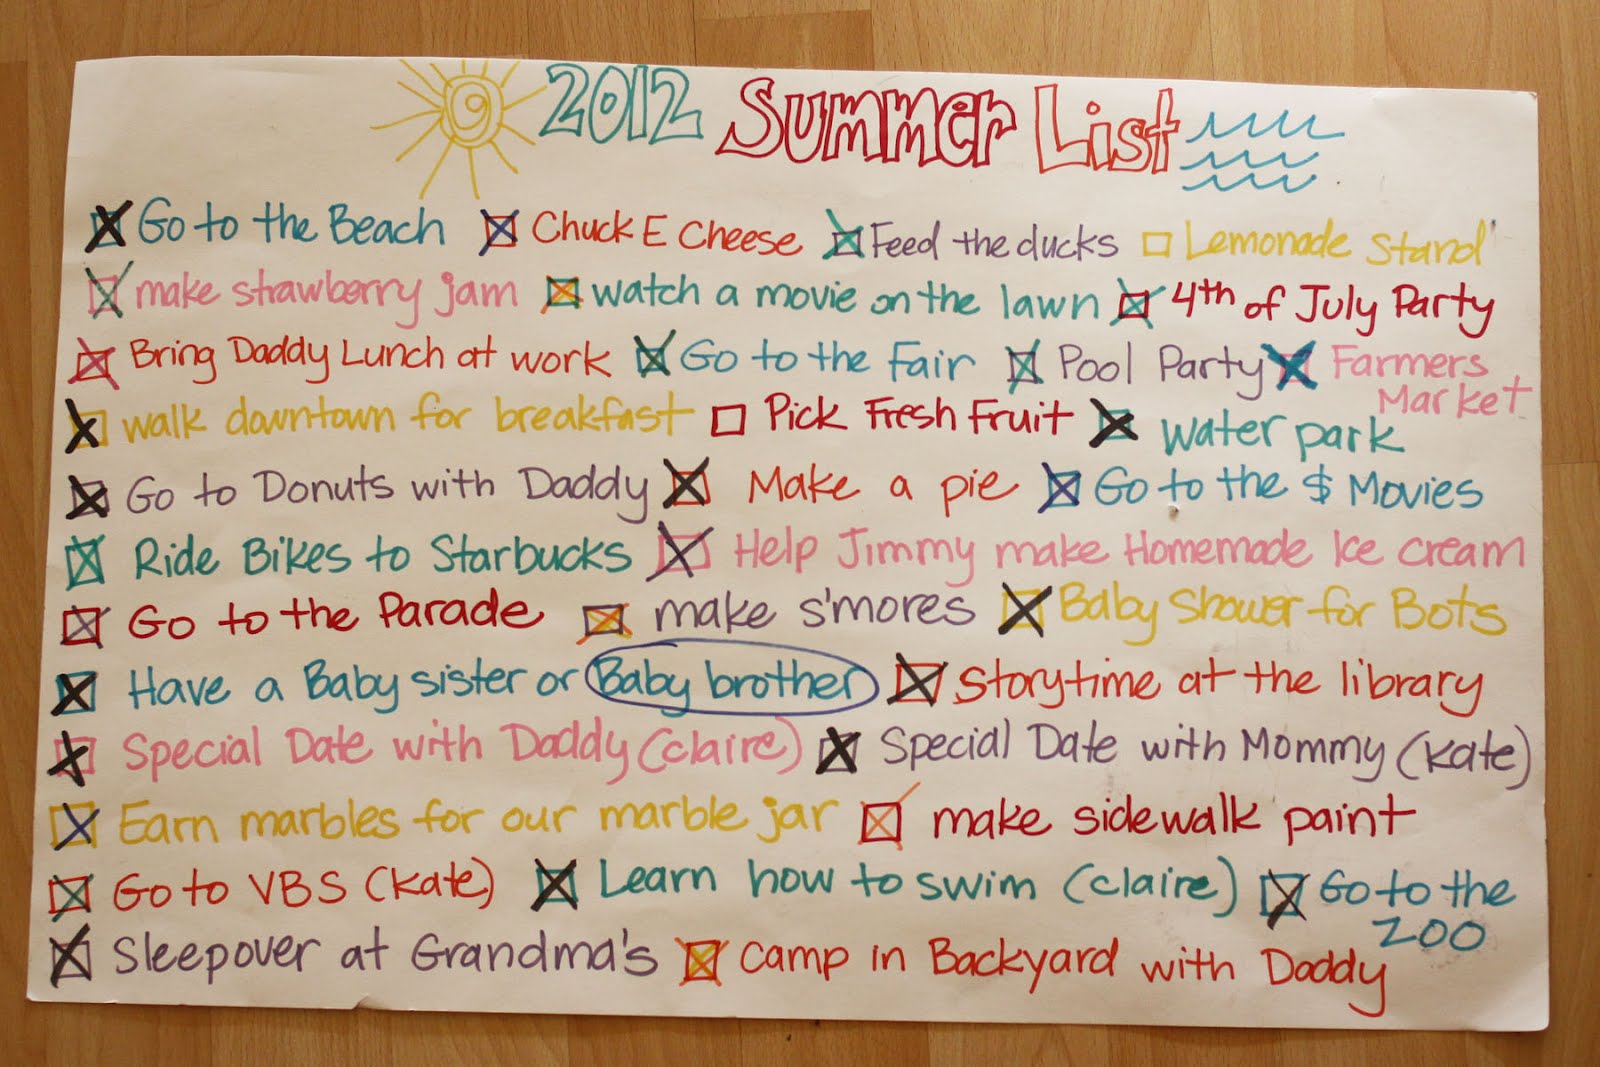 2012 Summer List
Go to the Beach Chuck E Cheese Feed the ducks Lemonade Stand
make strawberry jam watch a movie on the lawn 4th of July Party
Bring Daddy Lunch at work Go to the Fair Pool Party Farmers
Market
walk downtown for breakfast Pick Fresh Fruit water park
Go to Donuts with Daddy Make a pie Go to the $ Movies
Ride Bikes to Starbucks Help Jimmy make Homemade Ice cream
Go to the Parade make s'mores Baby Shower for Bots
Have a Baby sister or Baby brother Storytime at the library
Special Date with Daddy (Claire) Special Date with Mommy (Kate)
Earn marbles for our marble jar make sidewalk paint
Go to VBS (Kate) Learn how to swim (Claire) Go to the
ZOO
Sleepover at Grandma's Camp in Backyard with Daddy